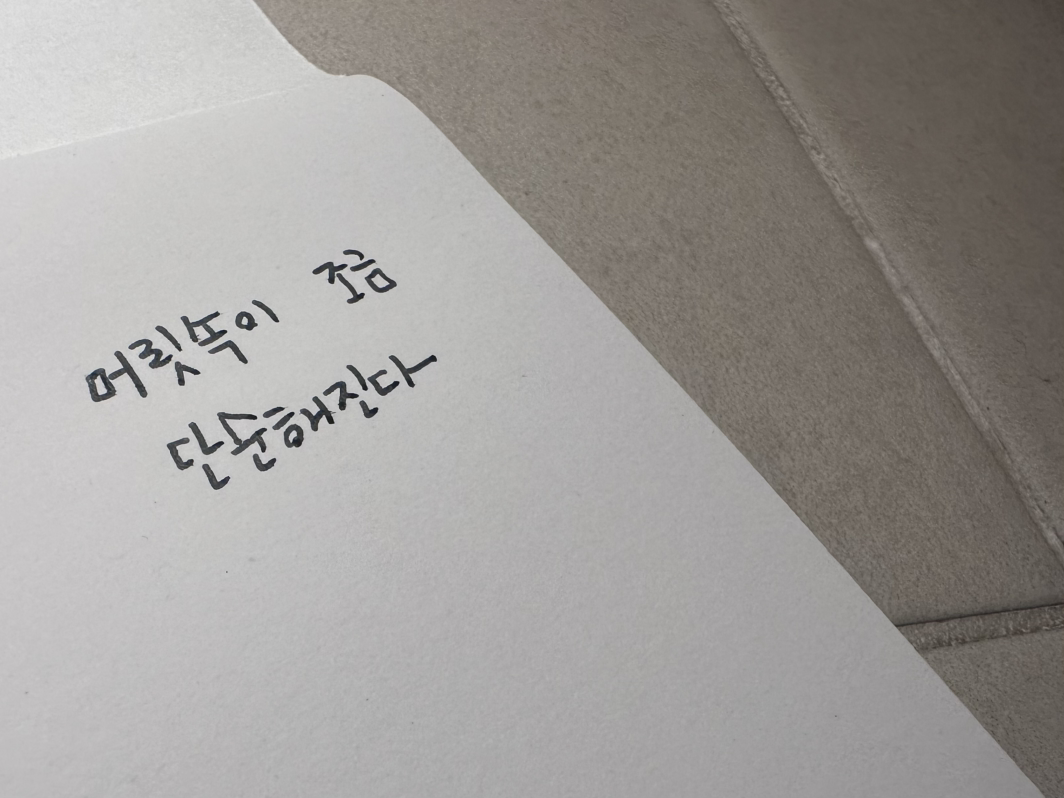 머릿속이 조금
단순해진다